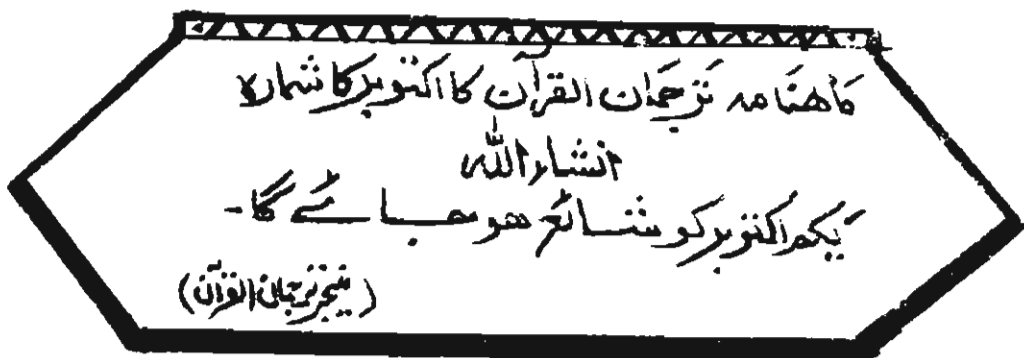 ماهنامہ ترجمان القرآن کا اکتوبر کا شمارہ
انشاء اللہ
یکم اکتوبر کو شائع ہو جائے گا۔
(منیجر ترجمان القرآن)